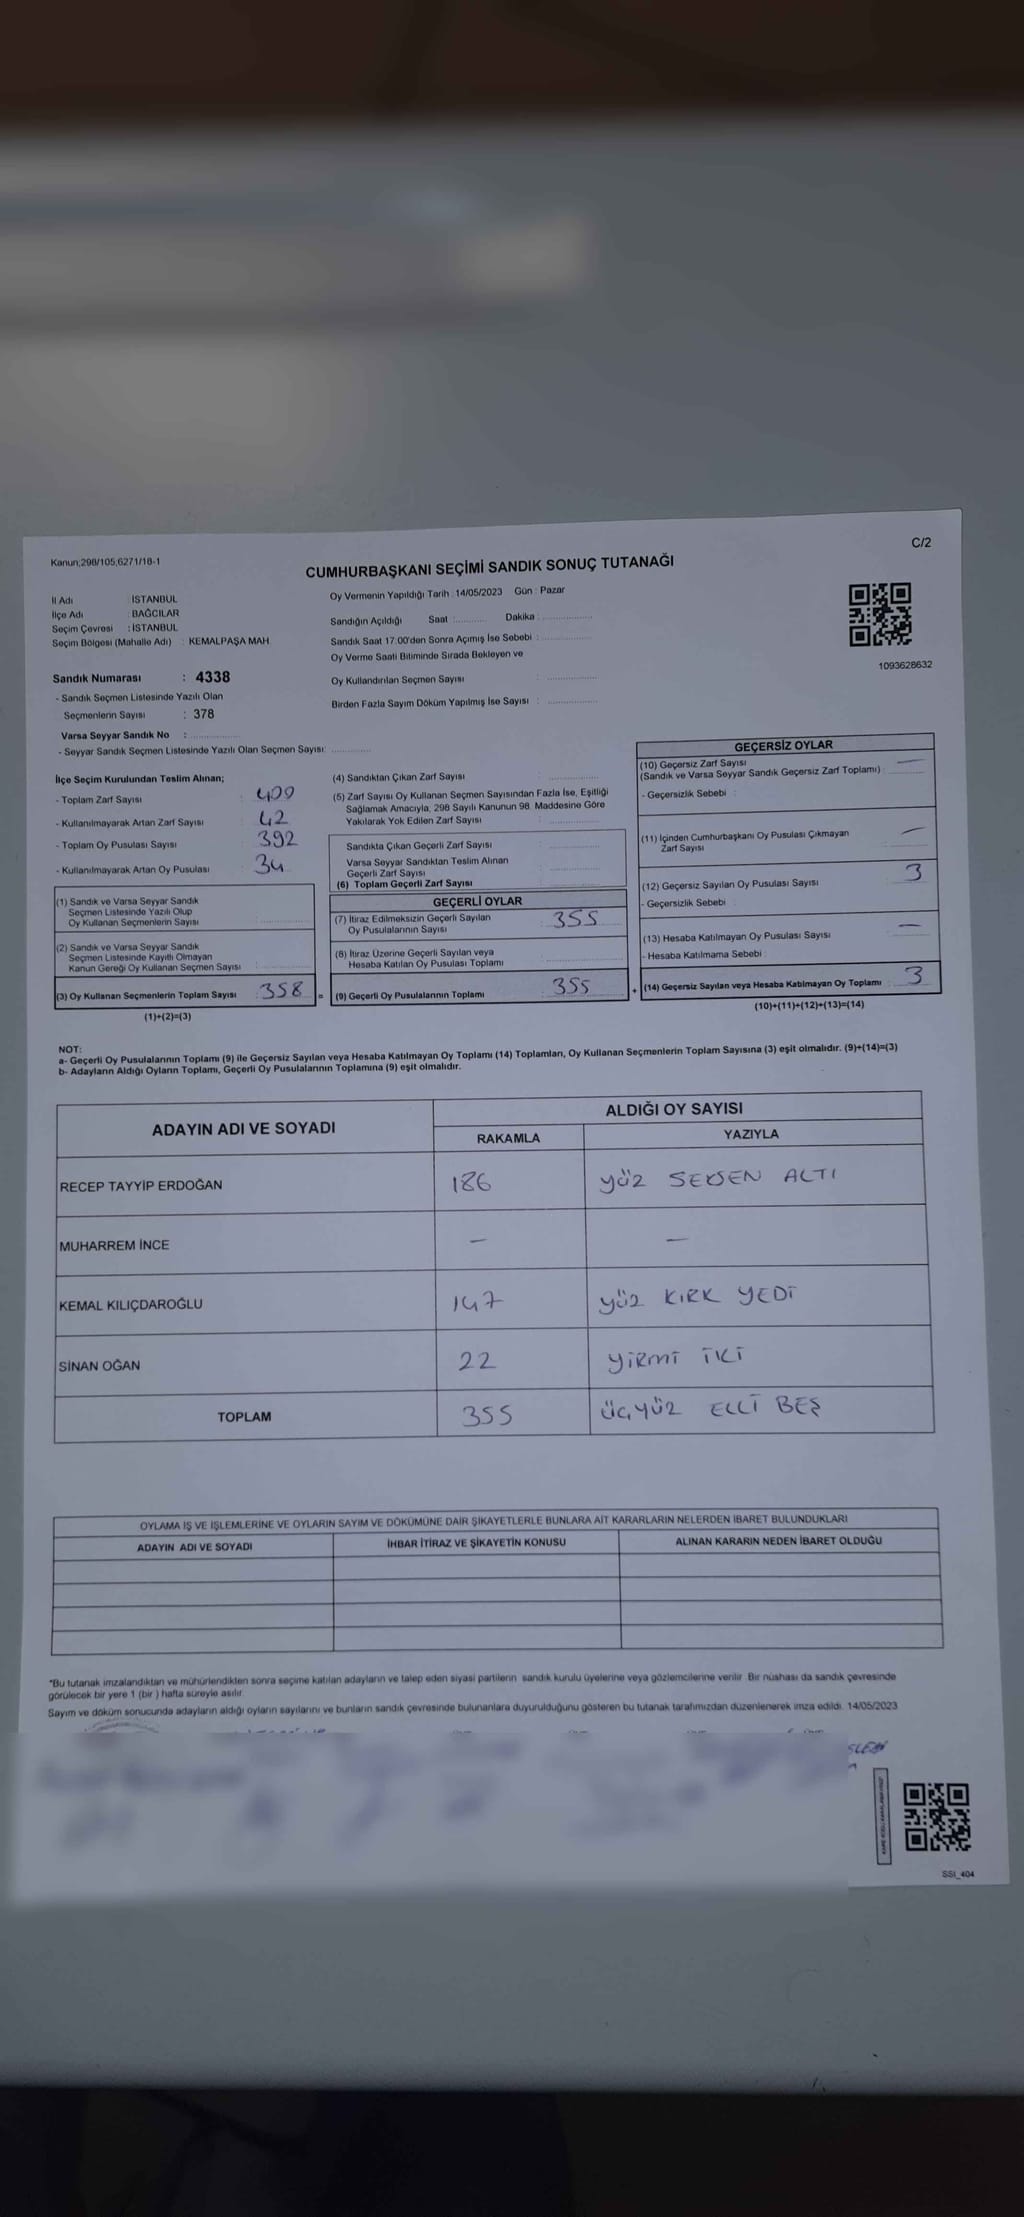 Kanun;298/105,6271/18-1
C/2
CUMHURBAŞKANI SEÇİMİ SANDIK SONUÇ TUTANAĞI
İl Adı : İSTANBUL
İlçe Adı : BAĞCILAR
Seçim Çevresi : İSTANBUL
Seçim Bölgesi (Mahalle Adı) : KEMALPAŞA MAH.
Sandık Numarası : 4338
- Sandık Seçmen Listesinde Yazılı Olan
Seçmenlerin Sayısı : 378
Varsa Seyyar Sandık No :
- Seyyar Sandık Seçmen Listesinde Yazılı Olan Seçmen Sayısı:
Oy Vermenin Yapıldığı Tarih : 14/05/2023 Gün : Pazar
Sandığın Açıldığı Saat : Dakika :
Sandık Saat 17:00'den Sonra Açımış İse Sebebi :
Oy Verme Saati Bitiminde Sırada Bekleyen ve
Oy Kullandırılan Seçmen Sayısı :
Birden Fazla Sayım Döküm Yapılmış İse Sayısı :
1093628632
İlçe Seçim Kurulundan Teslim Alınan;
- Toplam Zarf Sayısı : 400
- Kullanılmayarak Artan Zarf Sayısı : 42
- Toplam Oy Pusulası Sayısı : 392
- Kullanılmayarak Artan Oy Pusulası : 34
(1) Sandık ve Varsa Seyyar Sandık
Seçmen Listesinde Yazılı Olup
Oy Kullanan Seçmenlerin Sayısı
(2) Sandık ve Varsa Seyyar Sandık
Seçmen Listesinde Kayıtlı Olmayan
Kanun Gereği Oy Kullanan Seçmen Sayısı
(3) Oy Kullanan Seçmenlerin Toplam Sayısı : 358 =
(1)+(2)=(3)
(4) Sandıktan Çıkan Zarf Sayısı :
(5) Zarf Sayısı Oy Kullanan Seçmen Sayısından Fazla İse, Eşitliği
Sağlamak Amacıyla; 298 Sayılı Kanunun 98. Maddesine Göre
Yakılarak Yok Edilen Zarf Sayısı :
Sandıkta Çıkan Geçerli Zarf Sayısı
Varsa Seyyar Sandıktan Teslim Alınan
Geçerli Zarf Sayısı
(6) Toplam Geçerli Zarf Sayısı
GEÇERLİ OYLAR
(7) İtiraz Edilmeksizin Geçerli Sayılan
Oy Pusulalarının Sayısı : 355
(8) İtiraz Üzerine Geçerli Sayılan veya
Hesaba Katılan Oy Pusulası Toplamı
(9) Geçerli Oy Pusulalarının Toplamı : 355 +
GEÇERSİZ OYLAR
(10) Geçersiz Zarf Sayısı —
(Sandık ve Varsa Seyyar Sandık Geçersiz Zarf Toplamı) :
- Geçersizlik Sebebi :
(11) İçinden Cumhurbaşkanı Oy Pusulası Çıkmayan —
Zarf Sayısı
(12) Geçersiz Sayılan Oy Pusulası Sayısı 3
- Geçersizlik Sebebi
(13) Hesaba Katılmayan Oy Pusulası Sayısı —
- Hesaba Katılmama Sebebi
(14) Geçersiz Sayılan veya Hesaba Katılmayan Oy Toplamı : 3
(10)+(11)+(12)+(13)=(14)
NOT:
a- Geçerli Oy Pusulalarının Toplamı (9) ile Geçersiz Sayılan veya Hesaba Katılmayan Oy Toplamı (14) Toplamları, Oy Kullanan Seçmenlerin Toplam Sayısına (3) eşit olmalıdır. (9)+(14)=(3)
b- Adayların Aldığı Oyların Toplamı, Geçerli Oy Pusulalarının Toplamına (9) eşit olmalıdır.
ADAYIN ADI VE SOYADI
ALDIĞI OY SAYISI
RAKAMLA YAZIYLA
RECEP TAYYİP ERDOĞAN 186 YÜZ SEKSEN ALTI
MUHARREM İNCE — —
KEMAL KILIÇDAROĞLU 147 YÜZ KIRK YEDİ
SİNAN OĞAN 22 YİRMİ İKİ
TOPLAM 355 ÜÇYÜZ ELLİ BEŞ
OYLAMA İŞ VE İŞLEMLERİNE VE OYLARIN SAYIM VE DÖKÜMÜNE DAİR ŞİKAYETLERLE BUNLARA AİT KARARLARIN NELERDEN İBARET BULUNDUKLARI
ADAYIN ADI VE SOYADI İHBAR İTİRAZ VE ŞİKAYETİN KONUSU ALINAN KARARIN NEDEN İBARET OLDUĞU
*Bu tutanak imzalandıktan ve mühürlendikten sonra seçime katılan adayların ve talep eden siyasi partilerin sandık kurulu üyelerine veya gözlemcilerine verilir. Bir nüshası da sandık çevresinde
görülecek bir yere 1 (bir ) hafta süreyle asılır.
Sayım ve döküm sonucunda adayların aldığı oyların sayılarını ve bunların sandık çevresinde bulunanlara duyurulduğunu gösteren bu tutanak tarafımızdan düzenlenerek imza edildi. 14/05/2023
SSI_404